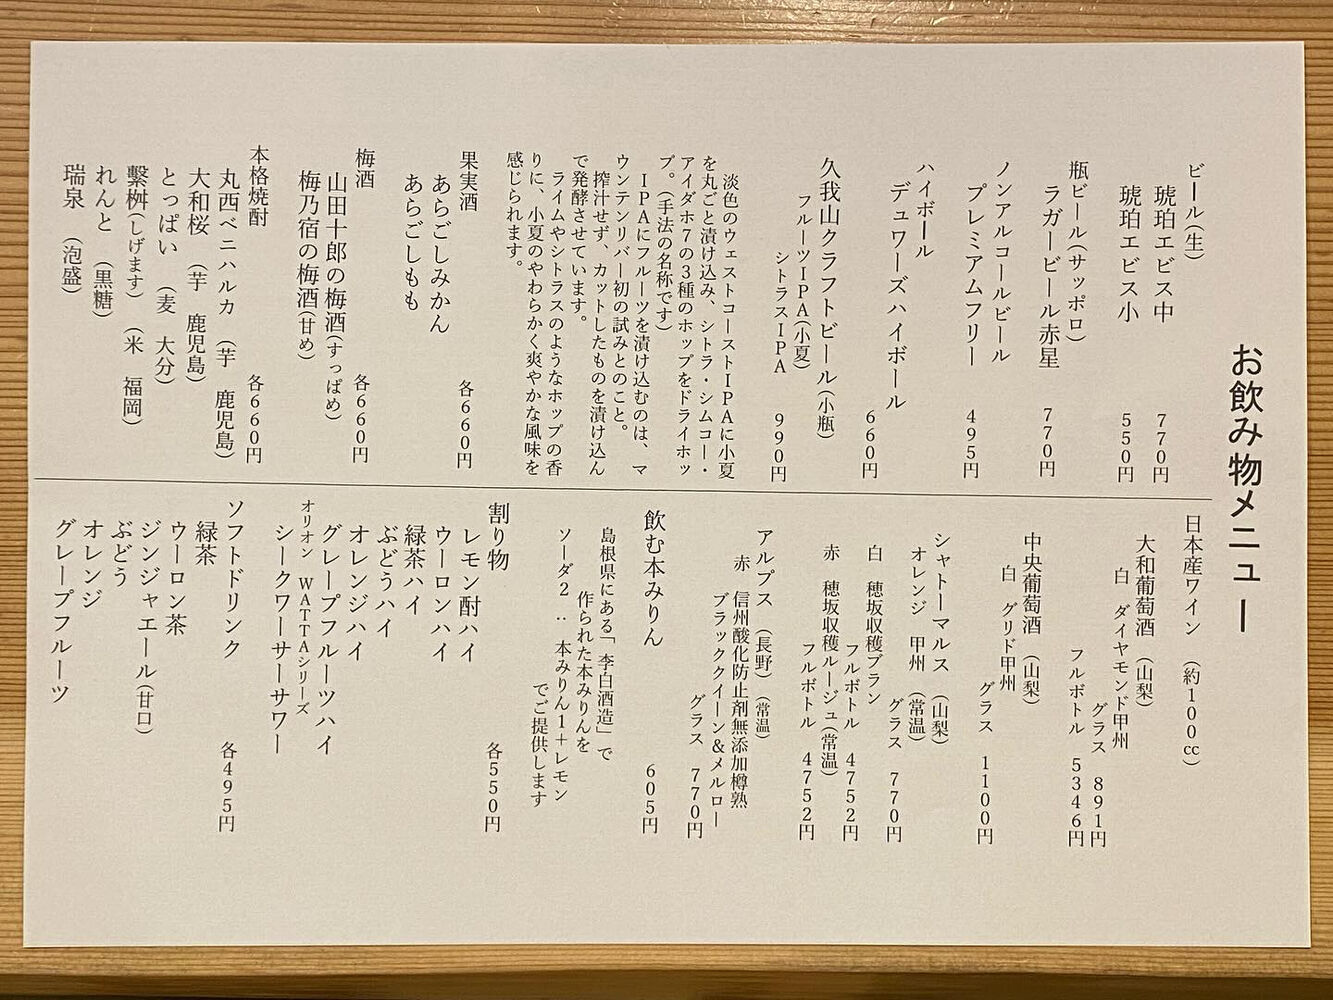 お飲み物メニュー
ビール(生)
琥珀エビス中 770円
琥珀エビス小 550円
瓶ビール(サッポロ)
ラガービール赤星 770円
ノンアルコールビール
プレミアムフリー 495円
ハイボール
デュワーズハイボール
660円
久我山クラフトビール(小瓶)
フルーツIPA(小夏)
シトラスIPA 990円
淡色のウェストコーストIPAに小夏
を丸ごと漬け込み、シトラ・シムコー・
アイダホ7の3種のホップをドライホッ
プ。(手法の名称です)
IPAにフルーツを漬け込むのは、マ
ウンテンリバー初の試みとのこと。
搾汁せず、カットしたものを漬け込ん
で発酵させています。
ライムやシトラスのようなホップの香
りに、小夏のやわらかく爽やかな風味を
感じられます。
果実酒 各660円
あらごしみかん
あらごしもも
梅酒 各660円
山田十郎の梅酒(すっぱめ)
梅乃宿の梅酒(甘め)
本格焼酎 各660円
丸西ベニハルカ (芋 鹿児島)
大和桜 (芋 鹿児島)
とっぱい (麦 大分)
繫桝(しげます) (米 福岡)
れんと (黒糖)
瑞泉 (泡盛)
日本産ワイン (約100cc)
大和葡萄酒 (山梨)
白 ダイヤモンド甲州
グラス 891円
フルボトル 5346円
中央葡萄酒 (山梨)
白 グリド甲州
グラス 1100円
シャトーマルス (山梨)
オレンジ 甲州 (常温)
グラス 770円
白 穂坂収穫ブラン
フルボトル 4752円
赤 穂坂収穫ルージュ(常温)
フルボトル 4752円
アルプス (長野) (常温)
赤 信州酸化防止剤無添加樽熟
ブラッククイーン&メルロー
グラス 770円
飲む本みりん 605円
島根県にある「李白酒造」で
作られた本みりんを
ソーダ2:本みりん1+レモン
でご提供します
割り物 各550円
レモン酎ハイ
ウーロンハイ
緑茶ハイ
ぶどうハイ
オレンジハイ
グレープフルーツハイ
オリオン WATTAシリーズ
シークワーサーサワー
ソフトドリンク 各495円
緑茶
ウーロン茶
ジンジャエール(甘口)
ぶどう
オレンジ
グレープフルーツ